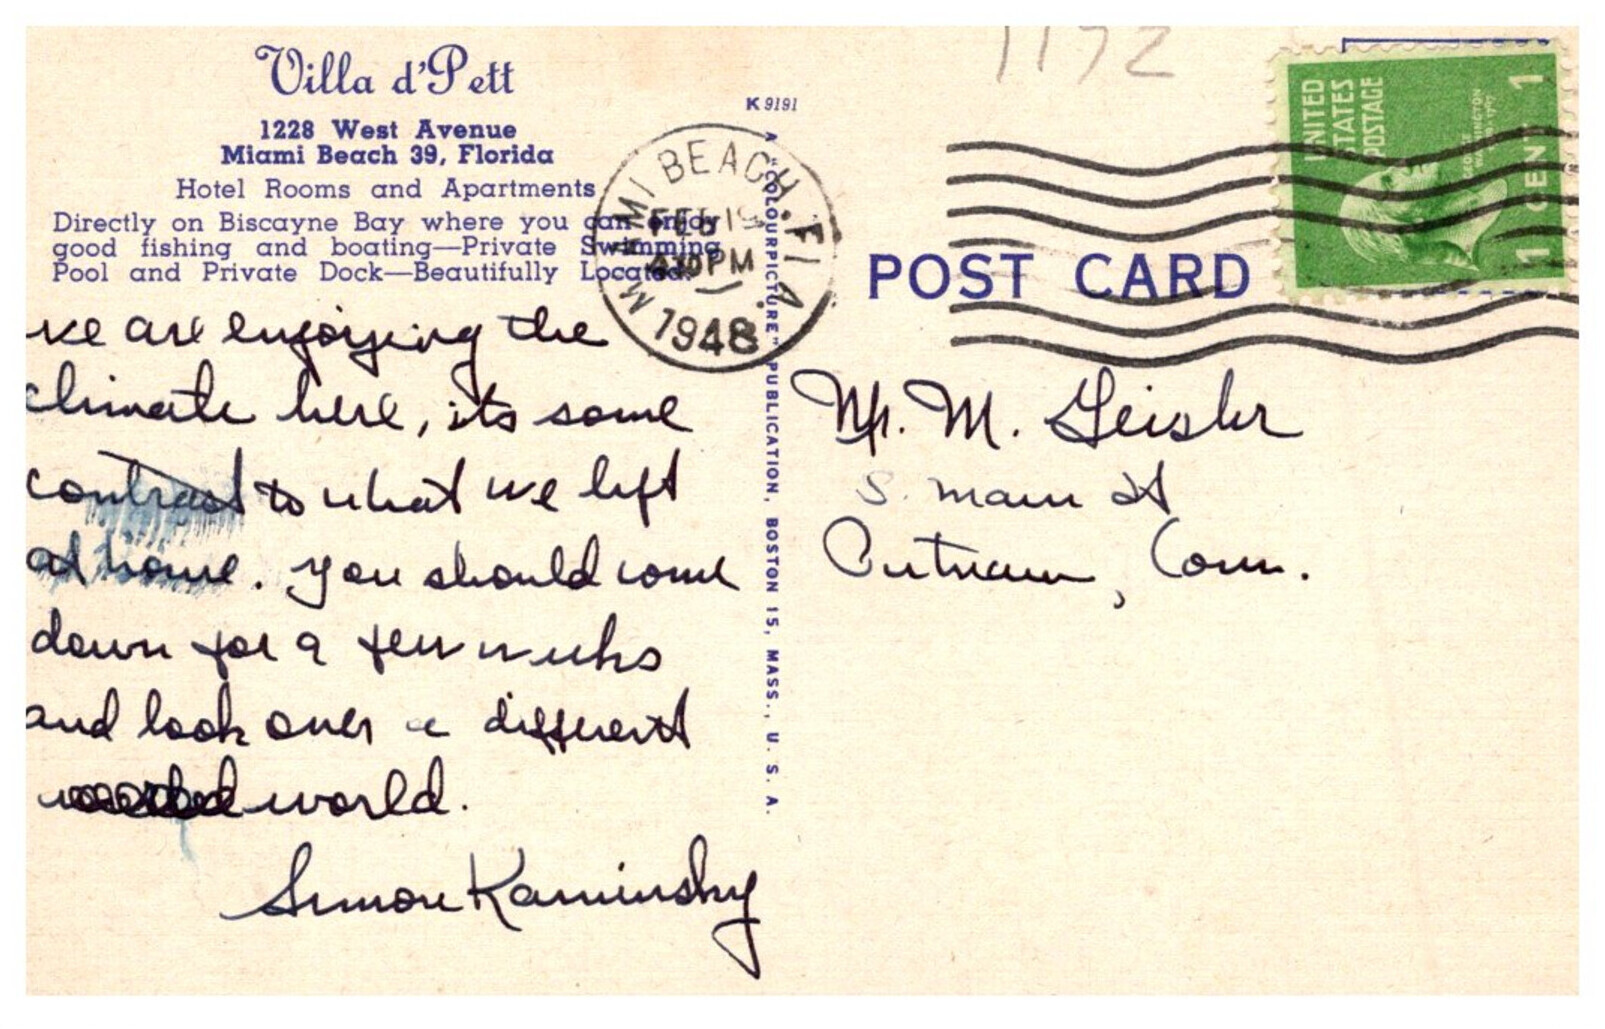 1172
Villa d'Pett
1228 West Avenue
Miami Beach 39, Florida
Hotel Rooms and Apartments
Directly on Biscayne Bay where you can enjoy
good fishing and boating—Private Swimming
Pool and Private Dock—Beautifully Located.
K 9191
MIAMI BEACH, FLA.
FEB 19
PM
1948
A "COLOURPICTURE" PUBLICATION, BOSTON 15, MASS., U. S. A.
UNITED
STATES
POSTAGE
GEORGE
WASHINGTON
1 CENT 1
POST CARD
we are enjoying the
climate here, its some
contrast to what we left
at home. you should come
down for a few weeks
and look over a different
world.
Simon Kaminsky
Mr. M. Geisler
S. Main St
Putnam, Conn.